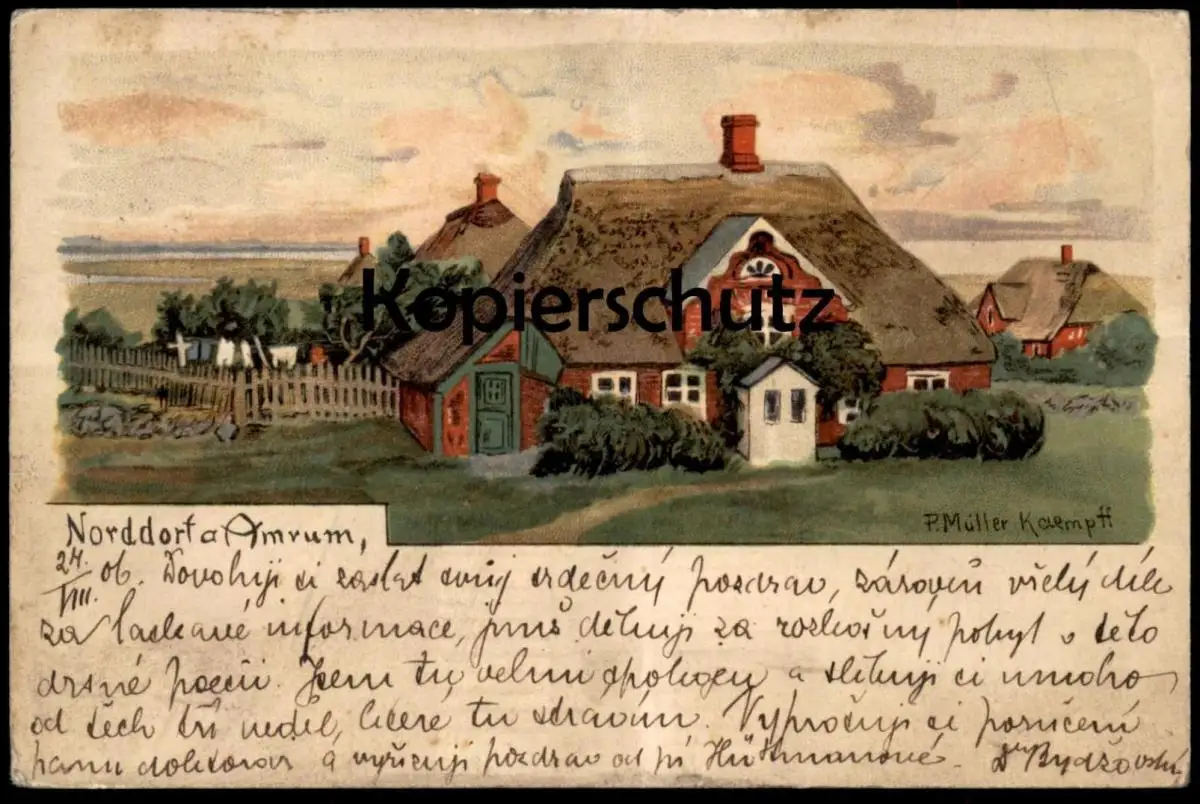 Kopierschutz
P. Müller Kaempff
Norddorf a Amrum,
24. VIII. 06. Dovoluji si zaslat svůj srdečný pozdrav, zároveň vřelý dík
za laskavé informace, jimž děkuji za rozkošný pobyt v této
drsné poesii. Jsem tu velmi spokojen a slibuji si mnoho
od těch tří neděl, které tu strávím. Vyprošuji si poručení
panu doktorov a vyřizuji pozdrav od pí Hüttmanové. Dr Bydžovský